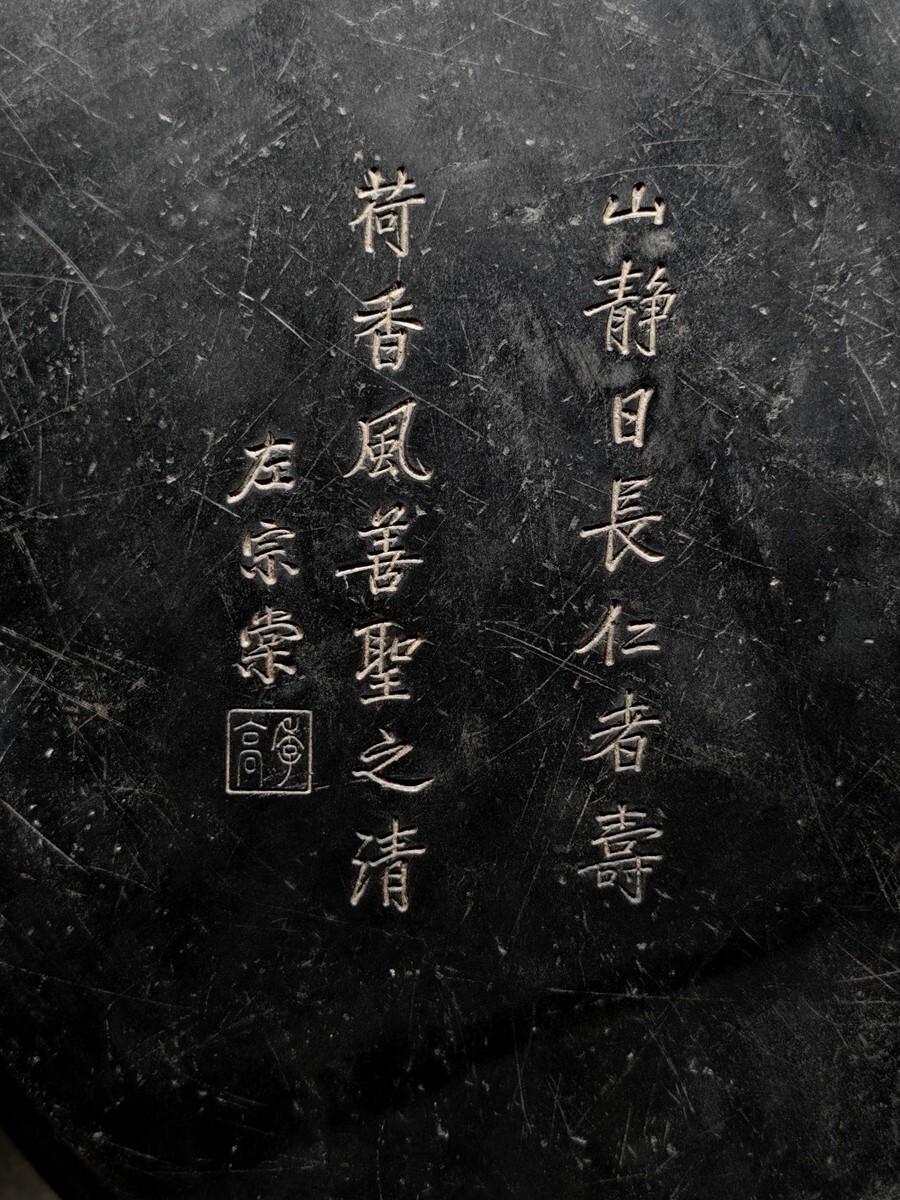 山静日長仁者壽
荷香風善聖之清
左宗棠
季高